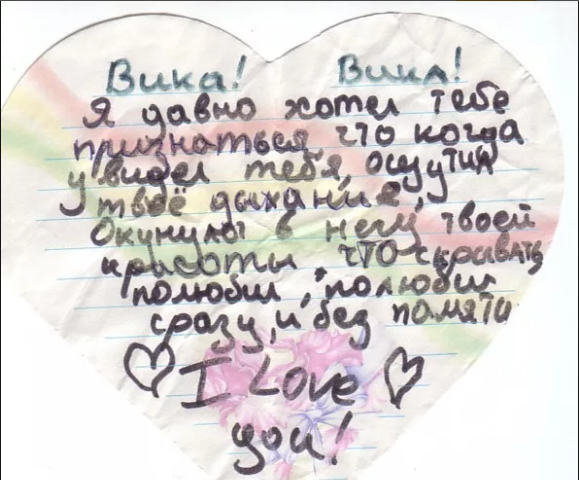 Вика! Вика!
Я давно хотел тебе
признаться, что когда
увидел тебя, ощутил
твоё дыхание,
Окунулся в негу твоей
красоты, что скрывать
полюбил, полюбил
сразу, и без памяти
I Love
you!